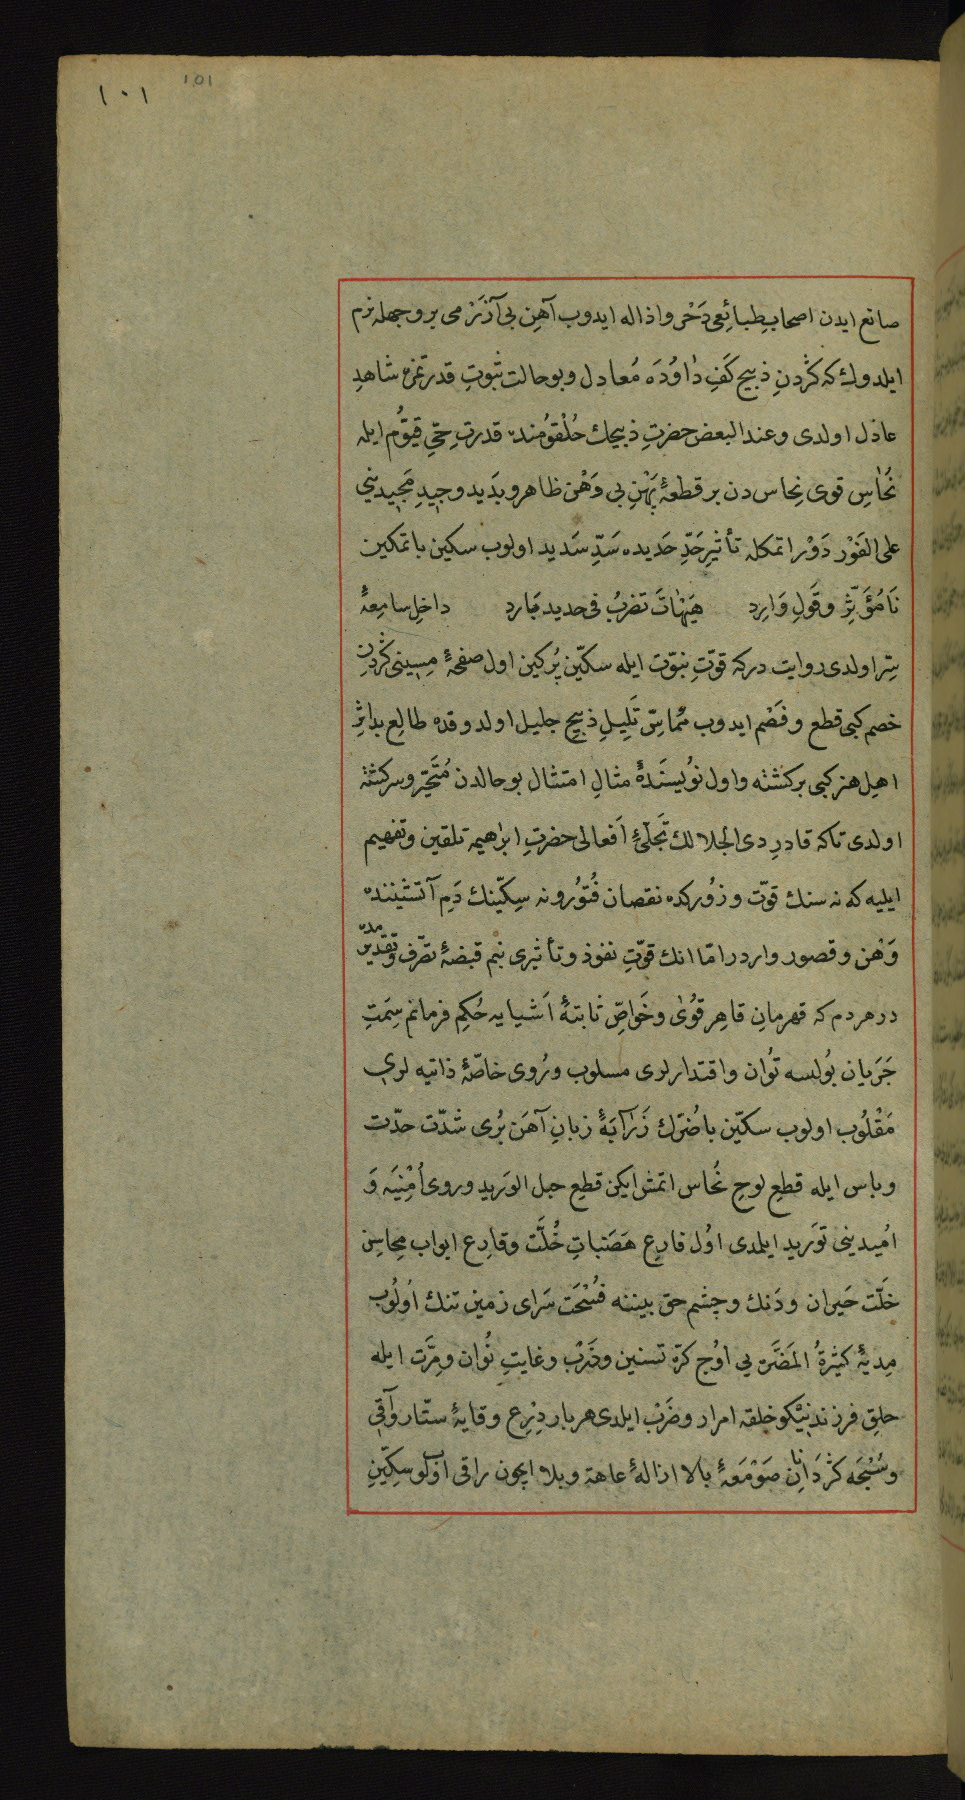 ١٠١
101
صانع ايدن اصحابِ طبائِعی دَحْر واذاله ايدوب آهنِ بی آذرَمی بر وجهله نرم
ايلدوك كه كَرْدنِ ذبيح كَفِ دٰاوُدَه مُعادل وبوحالت ثبوتِ قدرتمزه شاهدِ
عادل اولدی وعند البعض حضرتِ ذبيحك حُلْقوُمنده قدرتِ حیِّ قيّوُم ايله
نَحٰاسِ قوی نِحاس دن بر قطعۀ پَهْنِ بی وَهْن ظاهر وبَديد وجيدِ مَجيدينی
علی الفَوْر دَوْر اتمكله تأثيرِ حَدِّ حَديده سَدِّ سَديد اولوب سكين باتمكين
نَامُؤَثِّر وقَولِ وَارِد هَيْهَاتَ تضربُ فی حديد بَارد داخلِ سامِعۀ
سِرّ اولدی روايت دركه قوّتِ نبوّت ايله سكّين پُركين اول صفحۀ مِسينی كَرْدنِ
خصم كبی قطع وفَصْم ايدوب مُماسِّ تَلِيلِ ذبيح جليل اولدوقده طالِع بداثرِ
اهلِ هنر كبی بركشته واول نوُيسَنَدۀ مثالِ امتثال بوحالدن مُتَحَيّر وسركشته
اولدی تاكه قادرِ ذی الجلالك تَجَلّیِ اَفعالی حضرتِ ابراهيمه تلقين وتفهيم
ايليه كه نه سنك قوّت وزُوركده نقصان فُتوُر ونه سِكّينك دَمِ آتشيننده
وَهْن وقصور واردر امّا انك قوّتِ نفوذ وتأثيری بنم قبضۀ تصّرف وتقديرمده
در هردم كه قهرمانِ قاهر قوُیٰ وخَواصِّ ثابتۀ اَشيايه حُكِم فرمانم سِمَتِ
جَرَيان بُولسه توُان واقتدارلری مسلوب ورُوی خاصّۀ ذاتيه لری
مَقْلُوب اولوب سكّين باضُرّك زَرَابَۀ زبانِ آهَن بُری شدّت حدّت
وباس ايله قطعِ لوحِ نُحاس اتمش ايكن قطعِ حبل الوَريد وروی اُمْنِيَه وَ
اُميدينی توَريد ايلمدی اوُل قارِعِ هَضَباتِ خُلَّت وقارِعِ ابواب محاسِن
خَلّت حَيران ودَنك وچشم حق بيننه فُسْحَت سَرای زمين تنك اوُلُوب
مِديۀ كثيرةُ المَضَّره يی اوُج كرّه تسنين وضَرْب وغايتِ توُان ومِرَّت ايله
حلقِ فرزند نيكو خلقه امرار وضَرْب ايلدی هربار دِرْعِ وقايۀ ستّار وآقی
وسُبْحَه كَرْدَانانِ صَوْمَعۀ بالا ازالۀ عاهة وبلا ايچون راقی اولوب سكّينِ